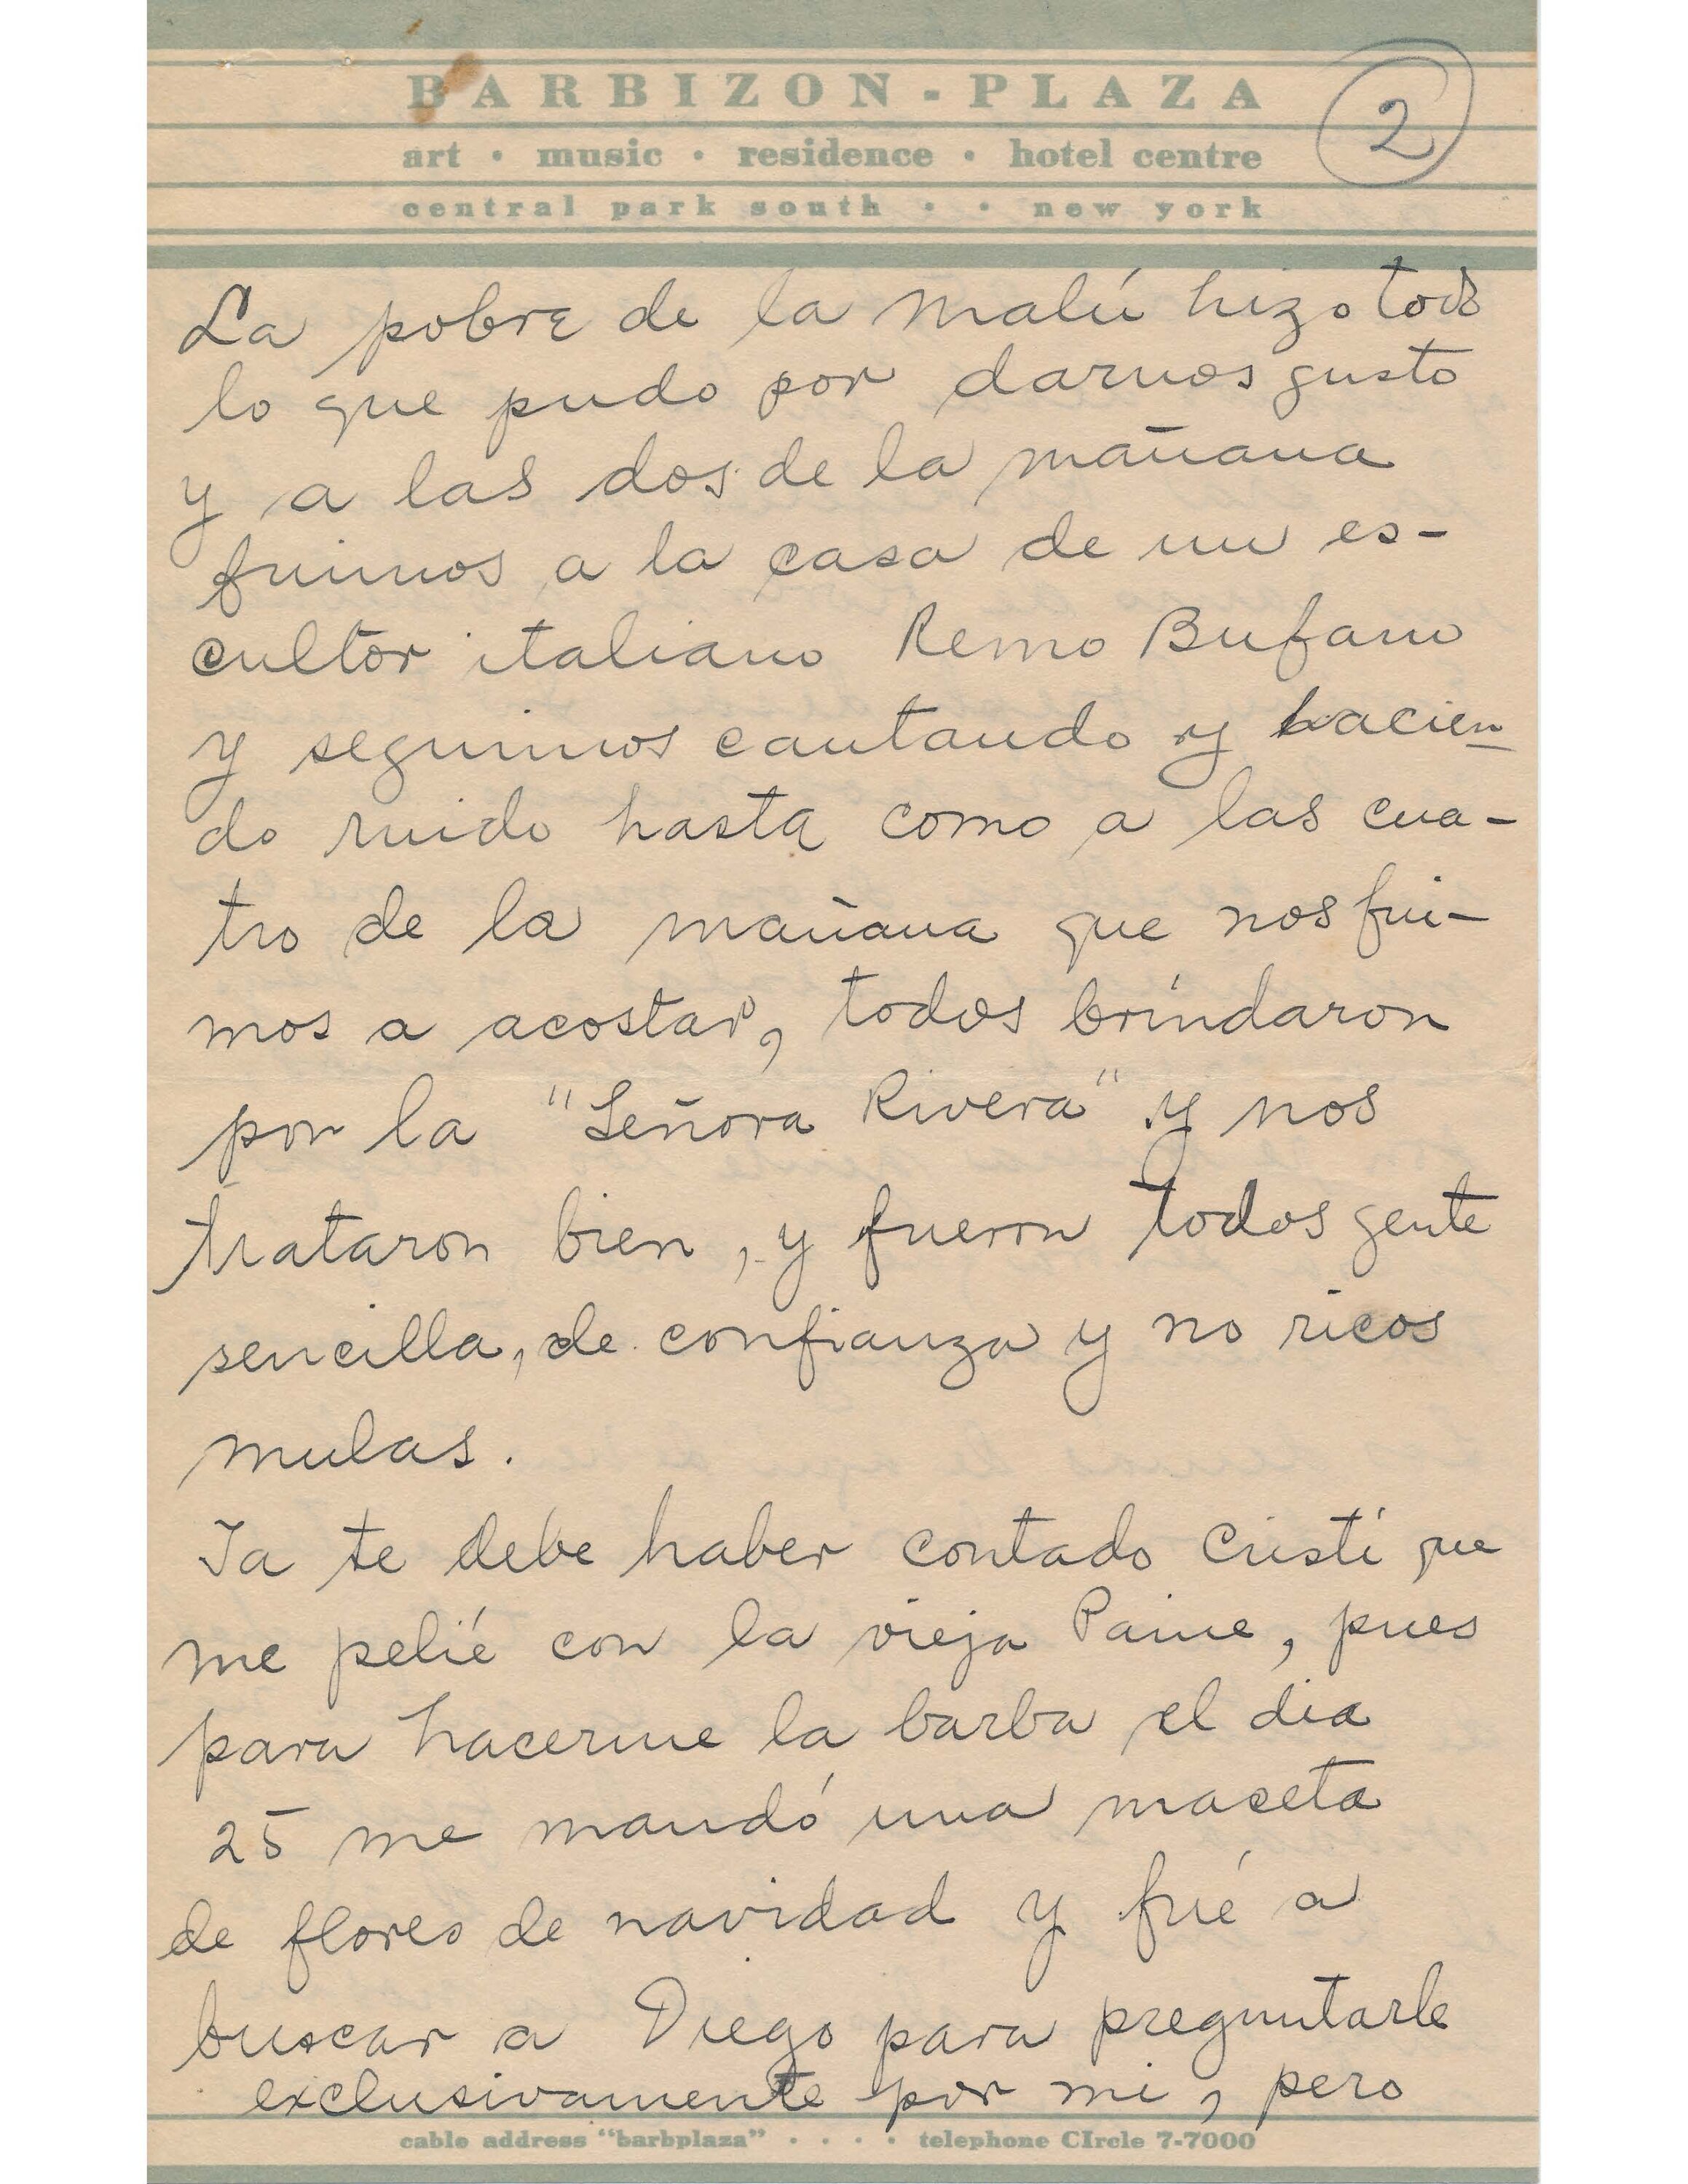 BARBIZON-PLAZA
art • music • residence • hotel centre
central park south • • new york
2
La pobre de la Malú hizo todo
lo que pudo por darnos gusto
y a las dos de la mañana
fuimos a la casa de un es-
cultor italiano Remo Bufano
y seguimos cantando y hacien
do ruido hasta como a las cua-
tro de la mañana que nos fui-
mos a acostar, todos bríndaron
por la "Señora Rivera" y nos
trataron bien, y fueron todos gente
sencilla, de confianza y no ricos
mulas.
Ya te debe haber contado Cristi que
me pelié con la vieja Paine, pues
para hacerme la barba el dia
25 me mandó una maceta
de flores de navidad y fué a
buscar a Diego para preguntarle
exclusivamente por mi, pero
cable address "barbplaza" • • • • telephone CIrcle 7-7000